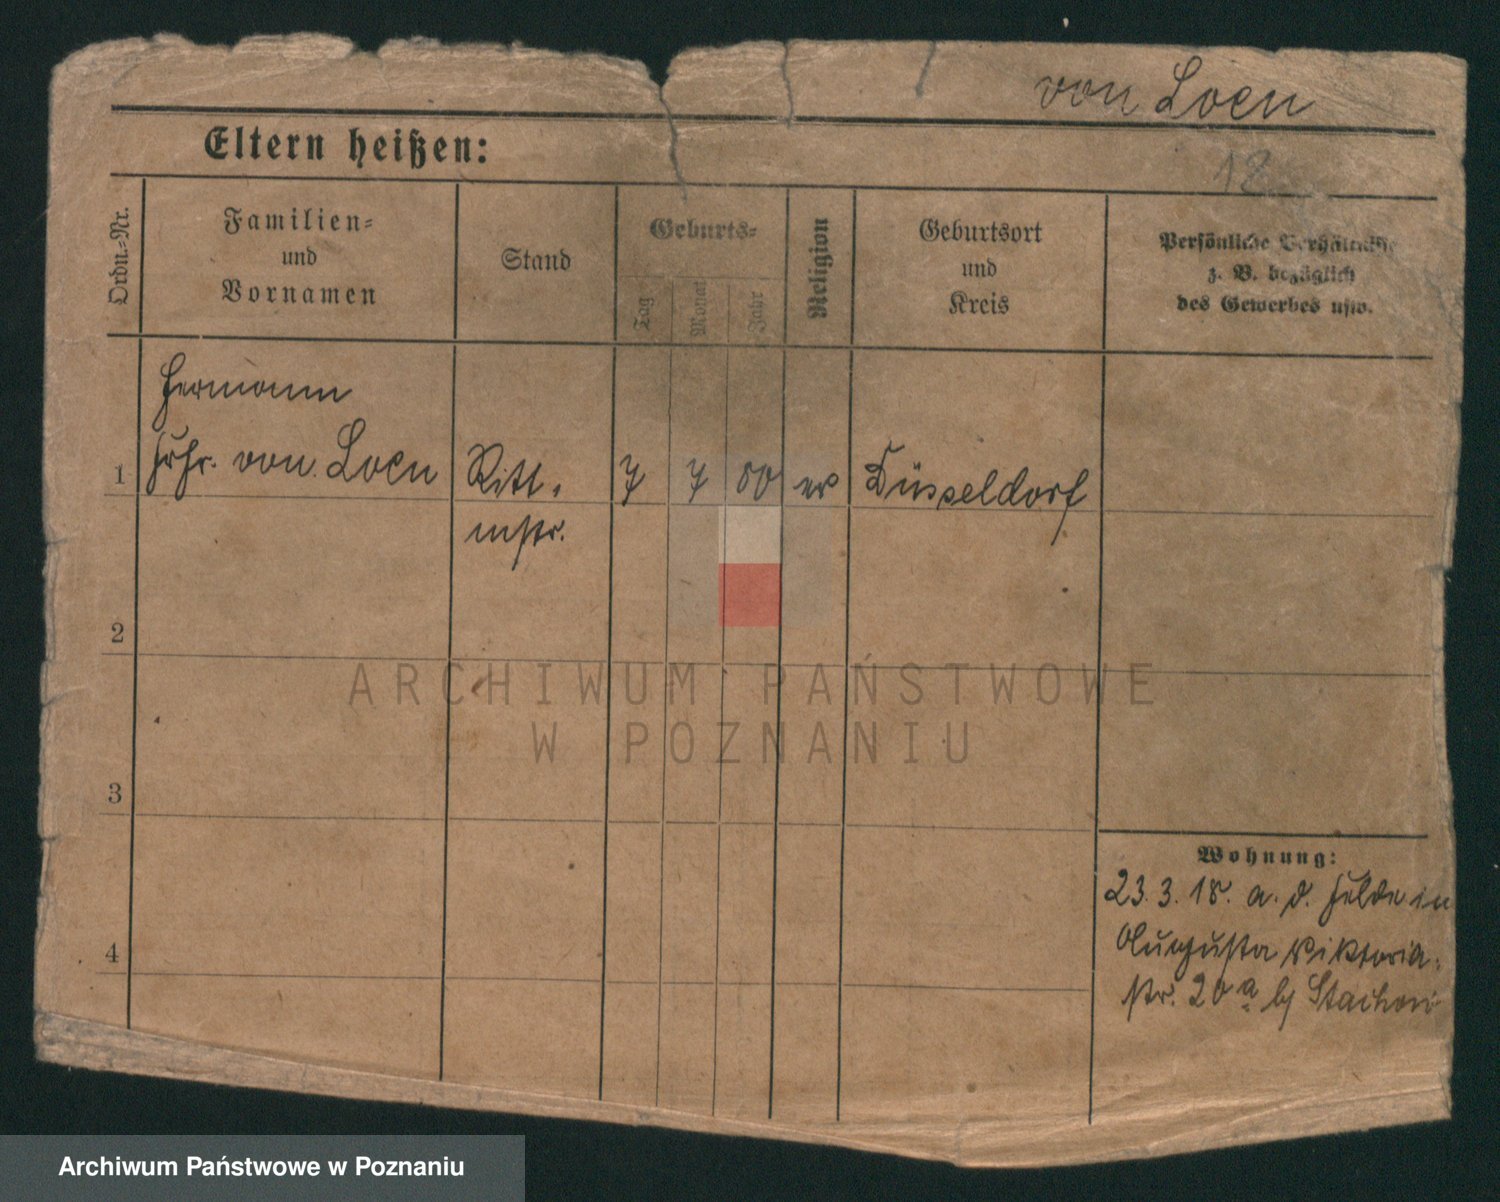 von Loen
Eltern heißen:
18
Ordn.-Nr.
Familien-
und
Vornamen
Stand
Geburts-
Tag
Monat
Jahr
Religion
Geburtsort
und
Kreis
Persönliche Verhältnisse
z. B. bezüglich
des Gewerbes usw.
Hermann
1 Frhr. von Loen Ritt. 7 7 80 ev Düsseldorf
mstr.
2
ARCHIWUM PAŃSTWOWE
W POZNANIU
3
Wohnung:
23.3.18. a. d. Felde in
4 Augusta Viktoria-
str. 20a b/
Archiwum Państwowe w Poznaniu